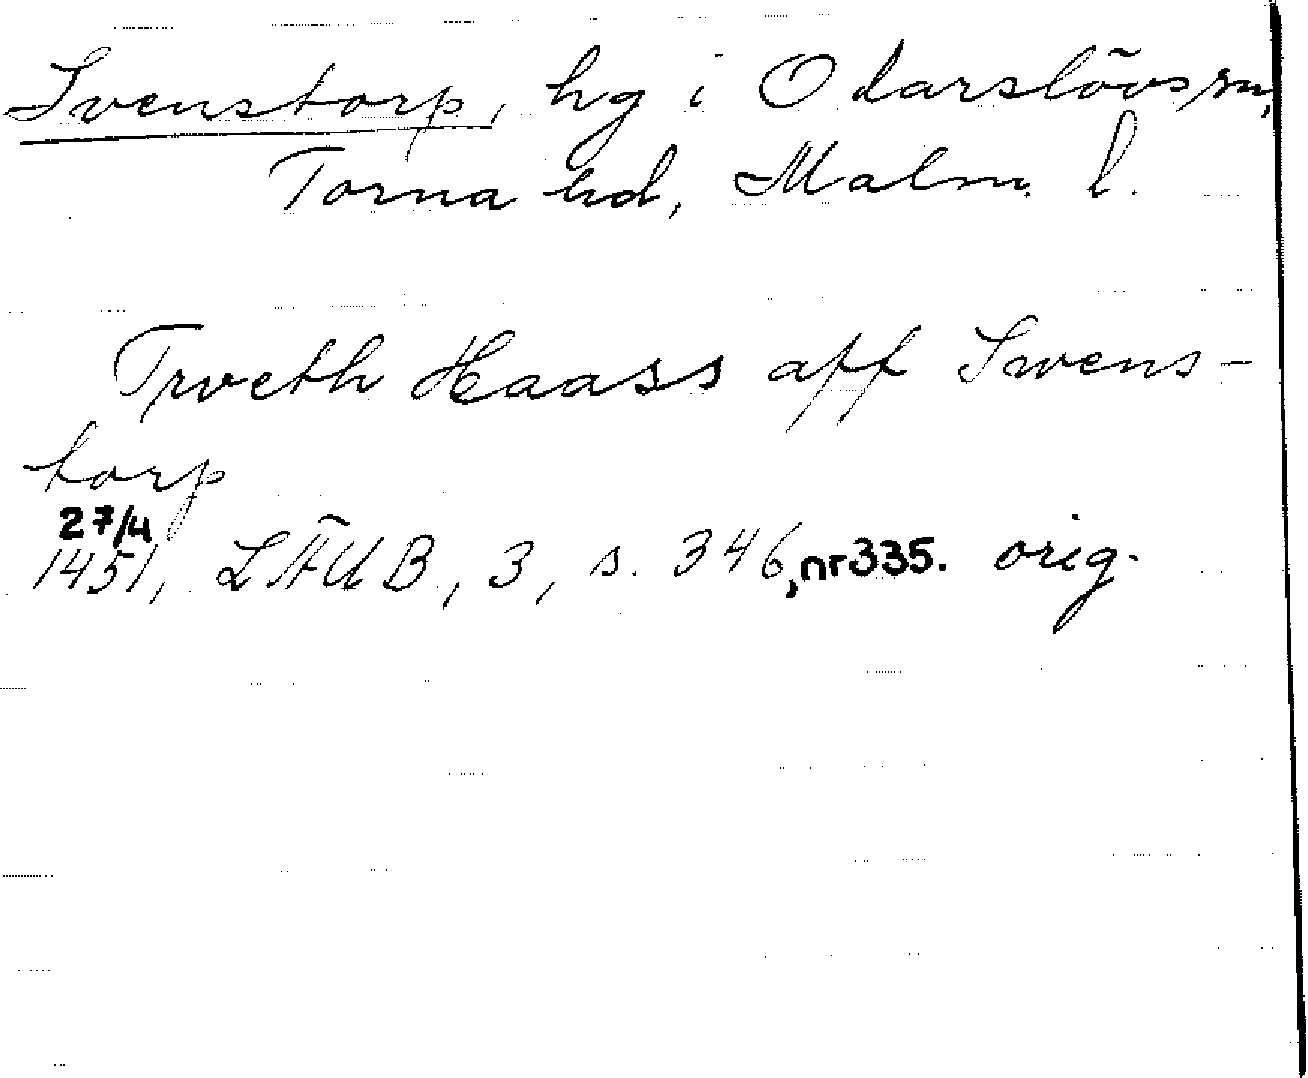 Svenstorp, hg i Odarslövs sn,
Torna hd, Malm. l.
Trweth Haass aff Swens-
torp
27/4
1451, LÄUB, 3, s. 346, nr 335. orig.